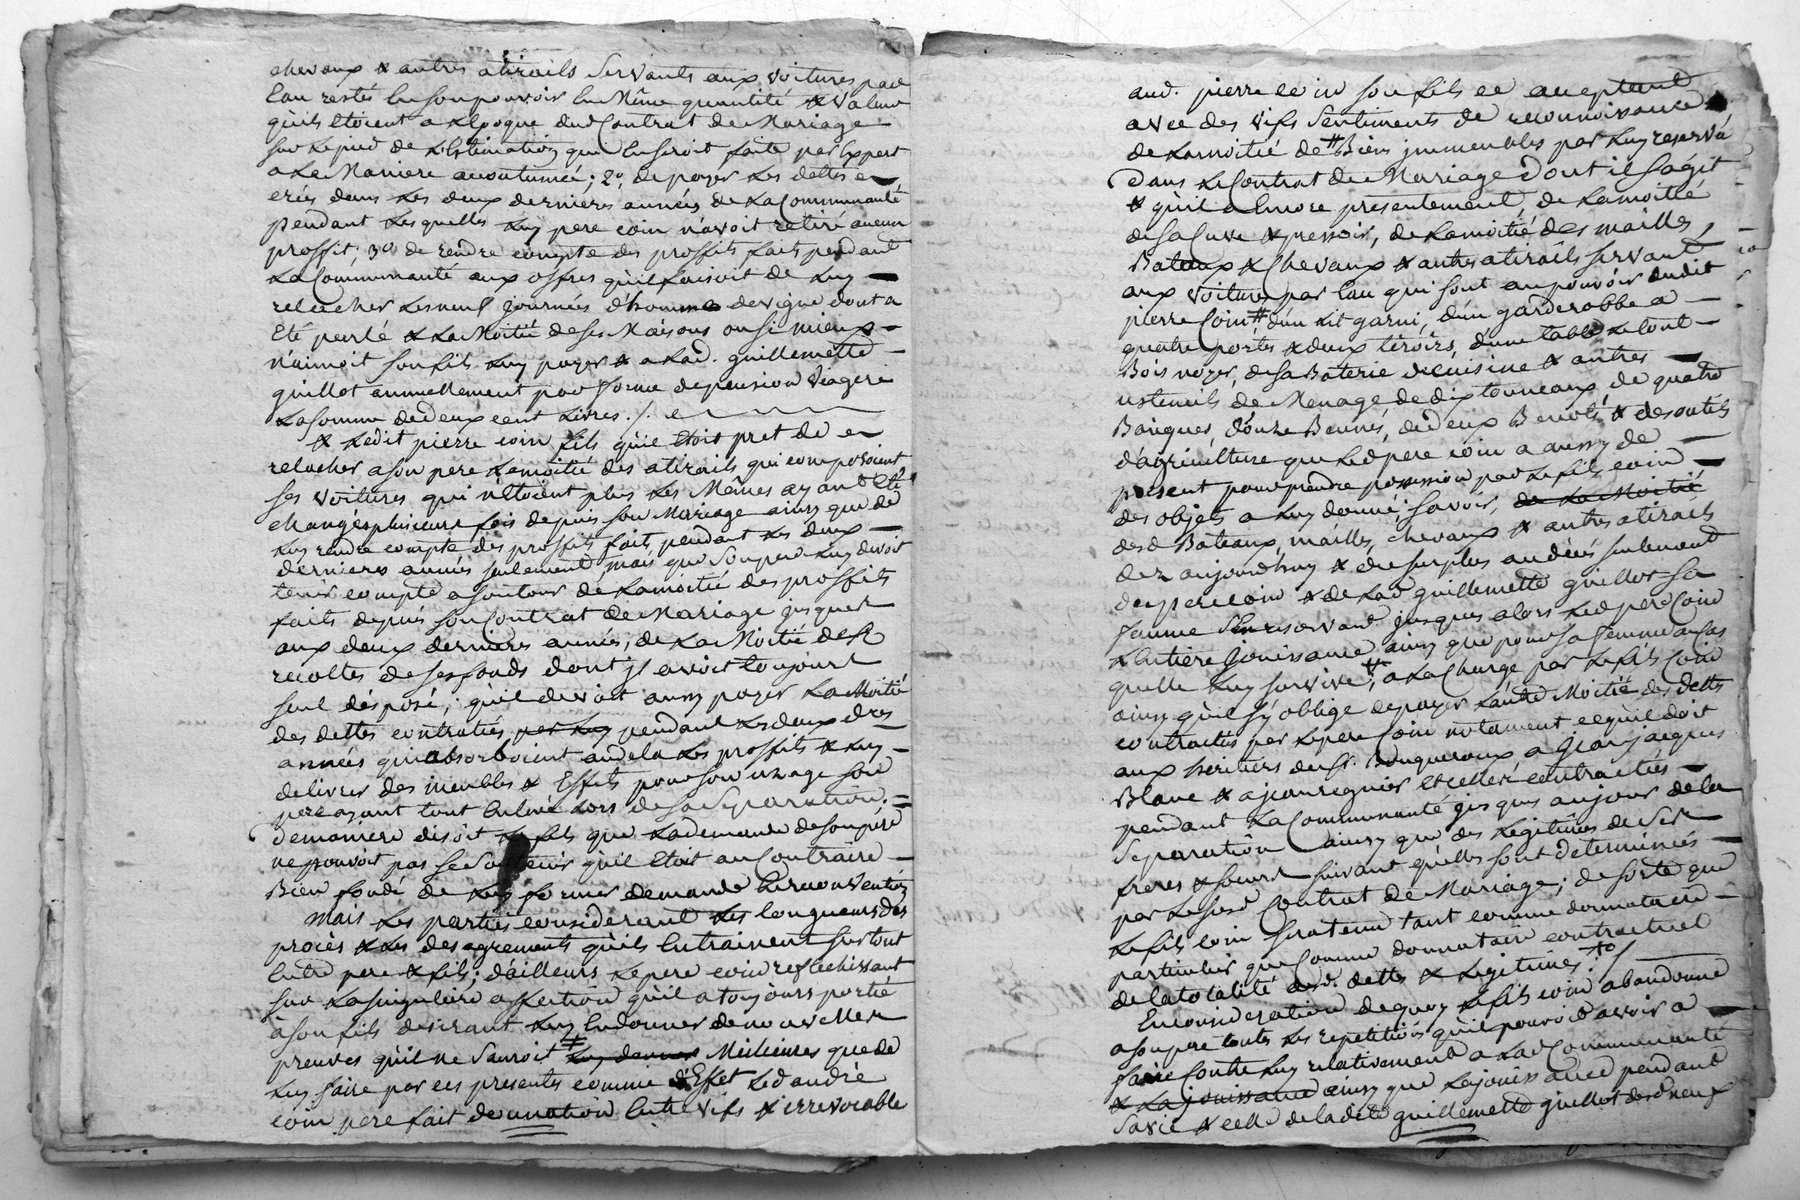 chevaux & autres atirails servants aux voitures par
Eau restés en son pouvoir en Même quantité & valeur
qu'ils etoient a l'epoque dud Contrat de Mariage
sur le pied de l'Estimation qui en seroit faite par Expert
a la Maniere acoutumée; 2°. de payer les dettes
créés dans les deux dernières années de la Communauté
pendant lesquelles luy pere coin n'avoit retiré aucun
proffit; 3° de rendre compte des proffits faits pendant
la Communauté aux offres qu'il faisoit de luy
relacher les neuf journées d'homme de vigne dont a
Eté parlé & la Moitié de ses Maisons ou si mieux
n'aimoit son fils luy payer & a lad. guillemette
guillot annuellement par forme de pension Viagere
la somme de deux cent Livres ./.
& ledit pierre coin fils qu'il etoit pret de
relacher a son pere la moitié des atirails qui composoient
ses voitures qui n'étoient plus les Mêmes ayant Eté
changés plusieurs fois depuis son Mariage ainsy que de
luy rendre compte des proffits faits pendant les deux
dernieres années seulement, mais que son pere luy devoit
tenir compte a son tour de la moitié des proffits
faits depuis son Contrat de Mariage jusques
aux deux dernieres années; de la Moitié des
recoltes de ses fonds dont il avoit toujours
seul disposé; qu'il devoit aussy payer la Moitié
des dettes contractés par luy pendant les deux dres
années qui absorboient audela les proffits & luy
delivrer des meubles & Effets pour son usage son
pere ayant tout Enlevé lors de la Separation.
demaniere disoit le fils que la demande de son pére
ne pouvoit pas se soutenir qu'il etoit au Contraire
Bien fondé de luy former demande En reconvention
Mais les parties considerant les longueurs des
procès & les desagrements qu'ils Entrainent surtout
Entre pere & fils; d'ailleurs le pere coin reflechissant
sur la singuliere affection qu'il a toujours porté
à son fils desirant luy En donner de nouvelles
preuves qu'il ne sauroit ‡ luy donner Meilieures que de
luy faire par ces presentes comme d'Effet led andré
coin pere fait donnation Entre vifs & irrevocable
aud. pierre coin son fils ce acceptant
avec des vifs sentiments de reconnoissance
de la moitié de # Biens immeubles par luy reservé
dans le Contrat de Mariage dont il s'agit
& qu'il a Encore presentement, de la moitié
de sa Cuve & pressoir, de la moitié des mailles,
Bateaux & Chevaux & autres atirails servant
aux voitures par Eau qui sont au pouvoir dudit
pierre Coin #, d'un lit garni, d'un garderobbe a
quatre portes & deux tiroirs, d'une table le tout
Bois noyer, de sa Baterie de cuisine & autres
ustencils de Menage, de dix tonneaux, de quatre
Bariques, d'onze Bennes, de deux & des outils
d'agriculture que led pere coin a aussy de
present pour prendre possession par le fils coin
des objets a luy donné, savoir, de la Moitié
desd Bateaux, mailles, chevaux & autres atirails
dez aujourd'huy & du surplus au décés seulement
du pere coin & de lad guillemette guillot sa
femme s'En reservant jusques alors led pere Coin
l'Entière jouissance ainsy que pour sa femme au cas
quelle luy survive #; a la Charge par le fils Coin
ainsy qu'il s'y oblige de payer l'autre Moitié des dettes
contractés par le pere Coin notament ce qu'il doit
aux heritiers du sr. Bouqueroux a Jean jacques
Blanc & a jean regnier Et celles contractés
pendant la Communauté jusques aujour de la
Separation ainsy que des legitimes de ses
freres & soeurs suivant qu'elles sont determinées
par le susd Contrat de Mariage; de sorte que
le fils coin sera tenu tant comme donnataire
particulier que comme donnataire contractuel
de la totalité desd. dettes & legitimes :
En consideration de quoy le fils coin abandonne
a son pere toutes les repetitions qu'il pouvoit avoir a
faire Contre luy relativement a lad Communauté
& la jouissance ainsy que la jouissance pendant
sa vie & celle de la dite guillemette guillot desd neuf